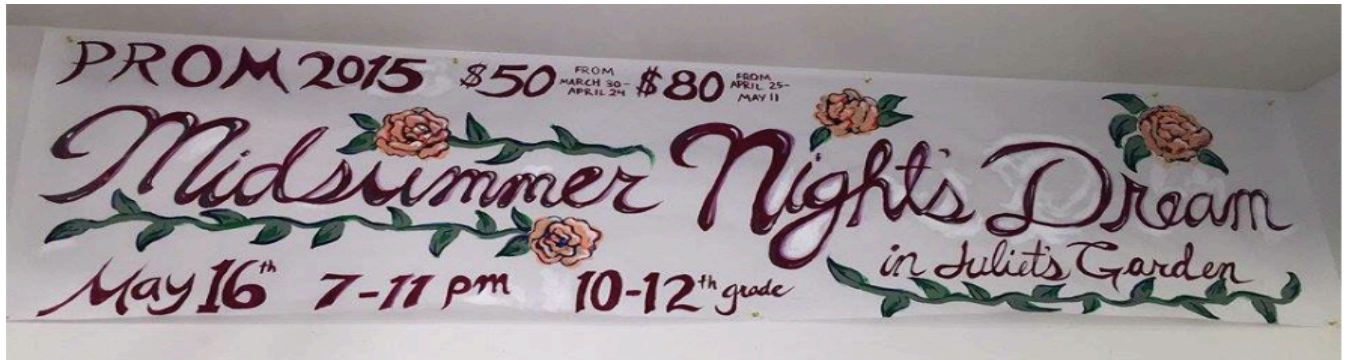 PROM 2015 $50 FROM MARCH 30- APRIL 24 $80 FROM APRIL 25- MAY 11
Midsummer Night's Dream
in Juliet's Garden
May 16th 7-11 pm 10-12th grade